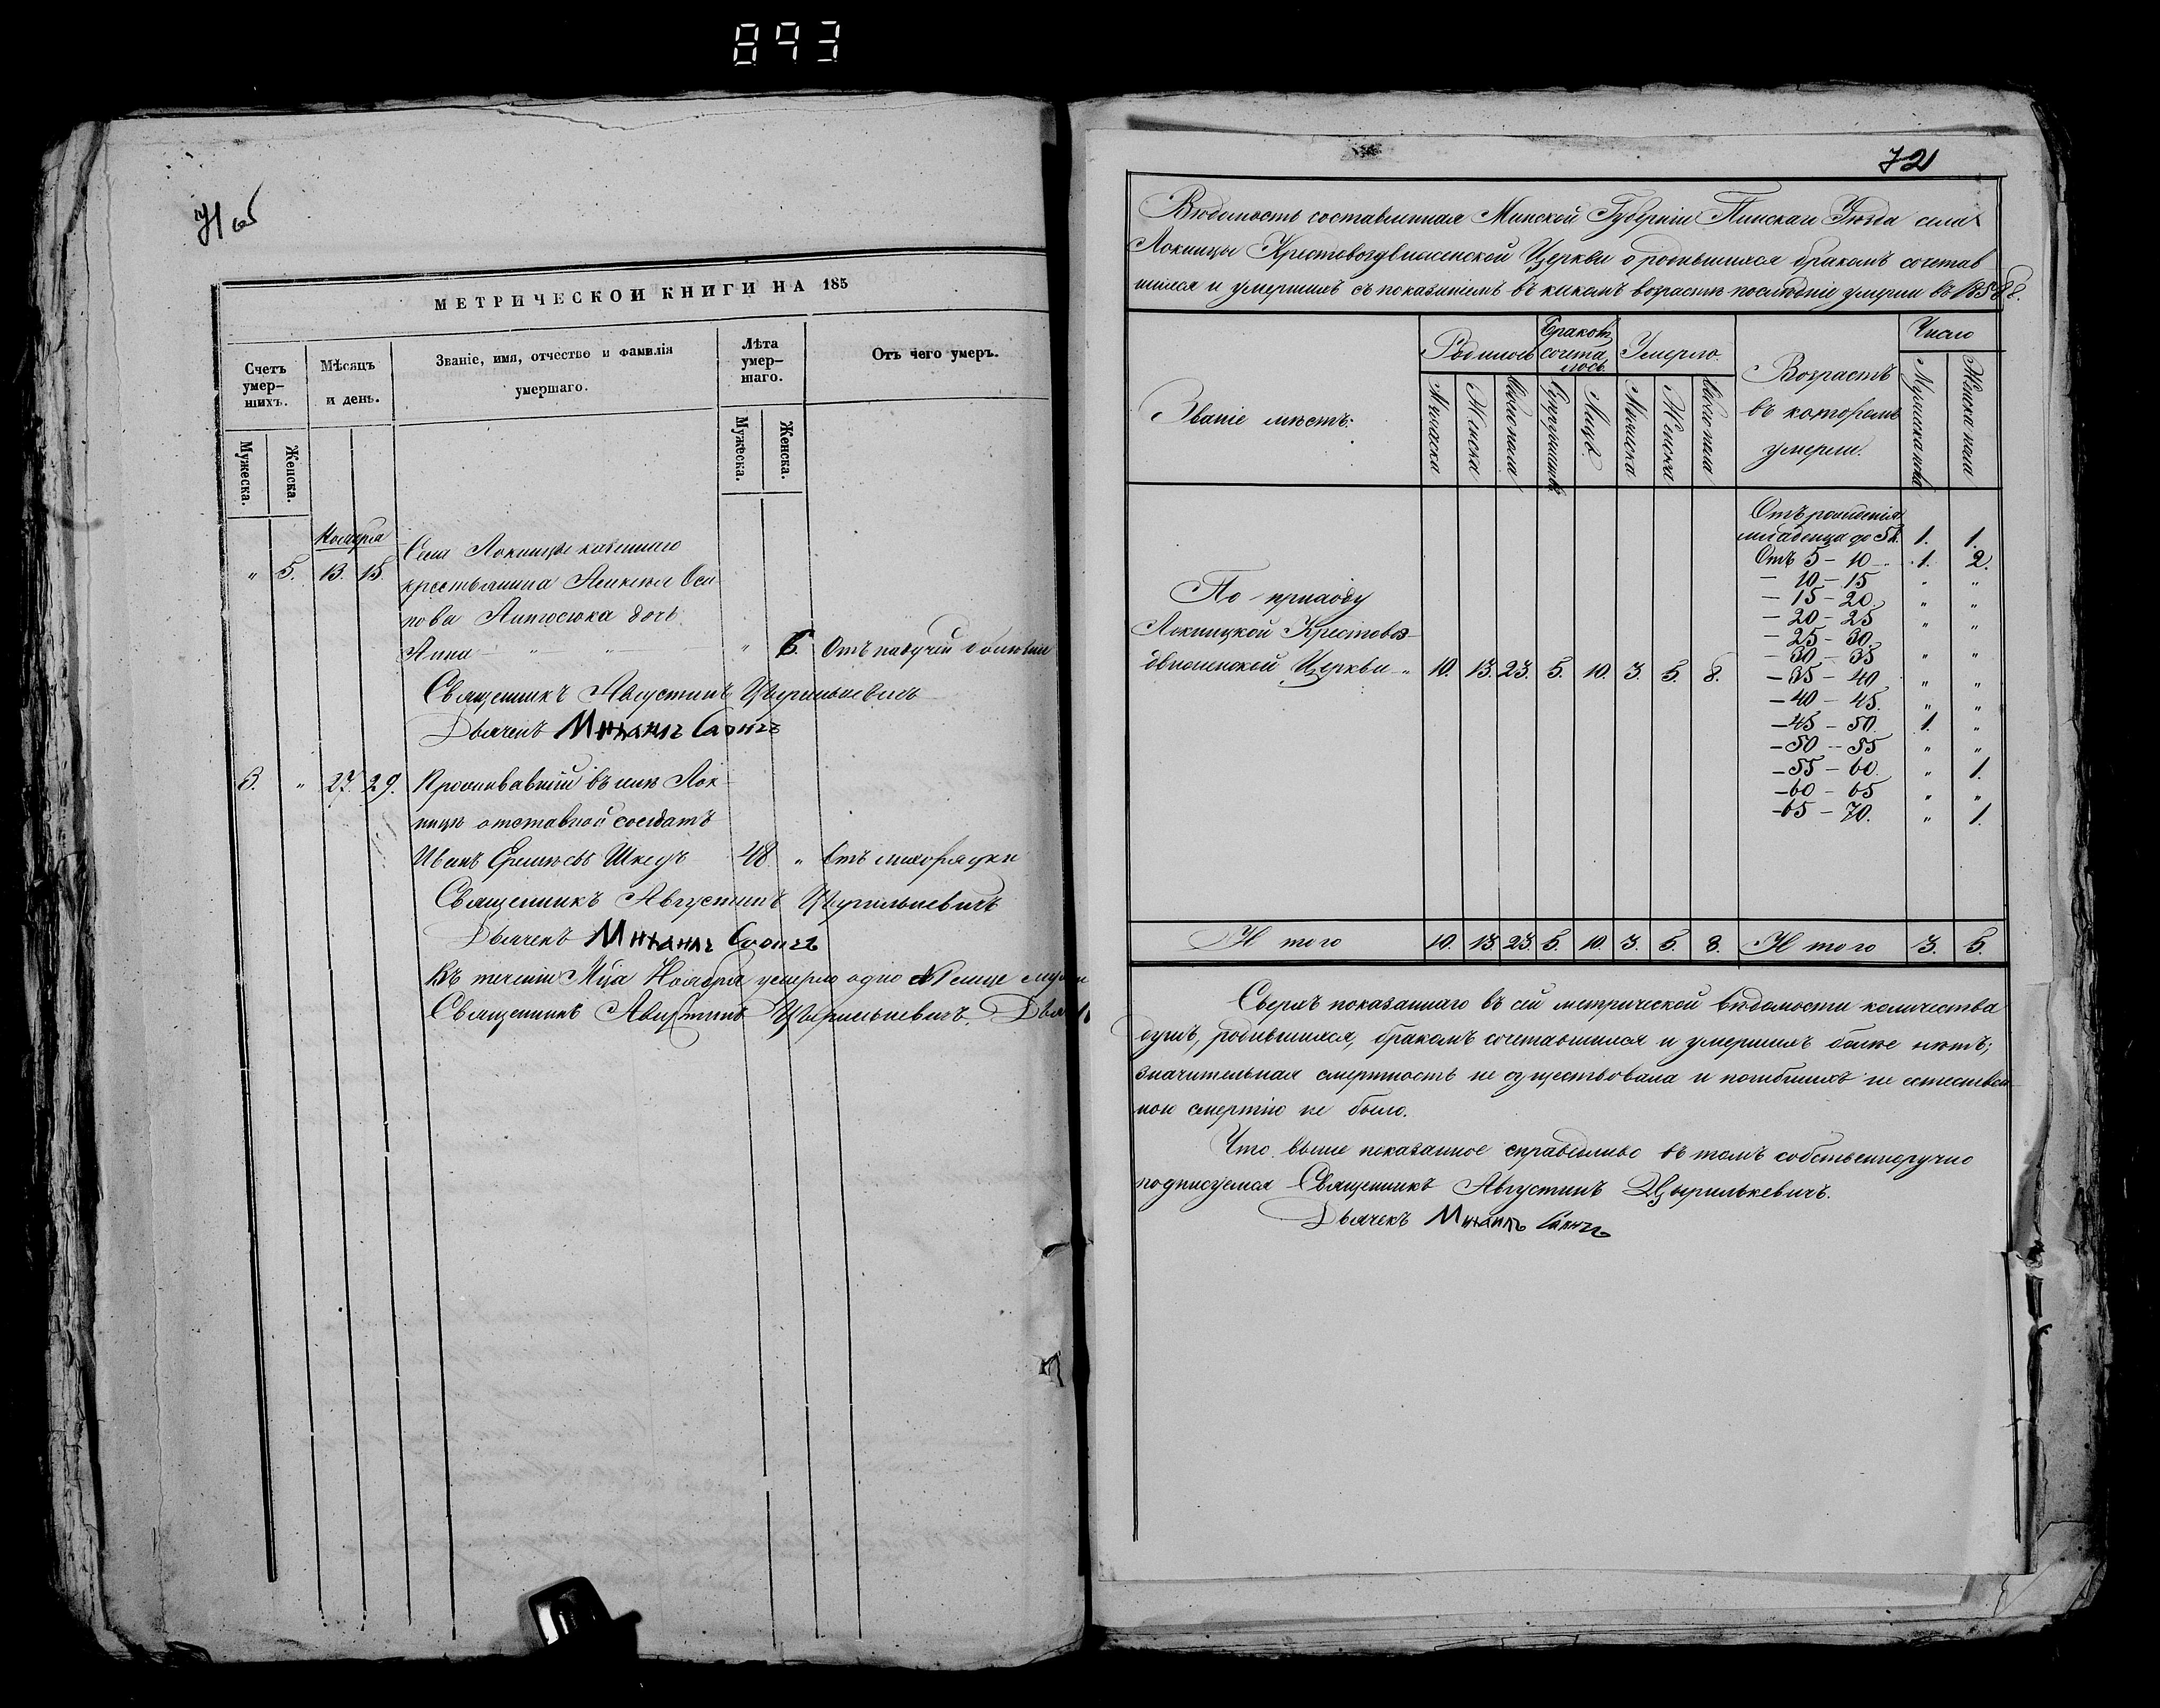 893
71 об
МЕТРИЧЕСКОЙ КНИГИ НА 185
Счетъ умер-шихъ.
Мѣсяцъ и день.
Званіе, имя, отчество и фамилія умершаго.
Лѣта умер-шаго.
Отъ чего умеръ.
Мужеска.
Женска.
Мужеска.
Женска.
Ноября
" 5. 13. 15. Села Локницы казеннаго
крестьянина Оси-
пова дочь
Анна " " " 6. Отъ падучей болѣзни
Священникъ Августинъ Цырилькевичъ
Дьячекъ Михаилъ
3. " 27. 29. Проживавшій въ селѣ Лок-
ницѣ отставной солдатъ
Иванъ 48 " Отъ лихорадки
Священникъ Августинъ Цырилькевичъ
Дьячекъ Михаилъ
Въ теченіи Мца Ноября умерло одно лице
Священникъ Августинъ Цырилькевичъ.
72
Вѣдомость составленная Минской Губерніи Пинскаго Уѣзда села
Локницы Крестовоздвиженской Церкви о родившихся бракомъ сочетав
шихся и умершихъ съ показаніемъ въ какомъ возрастѣ послѣдніе умерли въ 1858 г.
Званіе мѣстъ:
Родилось
Браковъ сочета лось.
Умерло.
Возрастъ въ которомъ умерли.
Число
Мужеска
Женска
Обоего пола
Супружествъ
Лицъ
Мужеска
Женска
Обоего пола
Мужеска пола
Женска пола
По приходу
Локницкой Крестовоз-
движенской Церкви " 10. 13. 23. 5. 10. 3. 5. 8.
Отъ рожденія
младенца до 5 л. 1. 1.
Отъ 5 – 10 1. 2.
– 10 – 15 " "
– 15 – 20. " "
– 20 – 25 " "
– 25 – 30.
– 30 – 35 " "
– 35 – 40 " "
– 40 – 45. " "
– 45 – 50. 1. "
– 50 – 55 " "
– 55 – 60. " 1.
– 60 – 65 " "
– 65 – 70. " 1.
И того 10. 13. 23. 5. 10. 3. 5. 8. И того 3. 5.
Сверхъ показаннаго въ сей метрической вѣдомости количества
душъ, родившихся, бракомъ сочетавшихся и умершихъ болѣе нѣтъ;
значительная смертность не существовала и погибшихъ не естествен-
ною смертію не было.
Что выше показанное справедливо въ томъ собственноручно
подписуемся Священникъ Августинъ Цырилькевичъ.
Дьячекъ Михаилъ